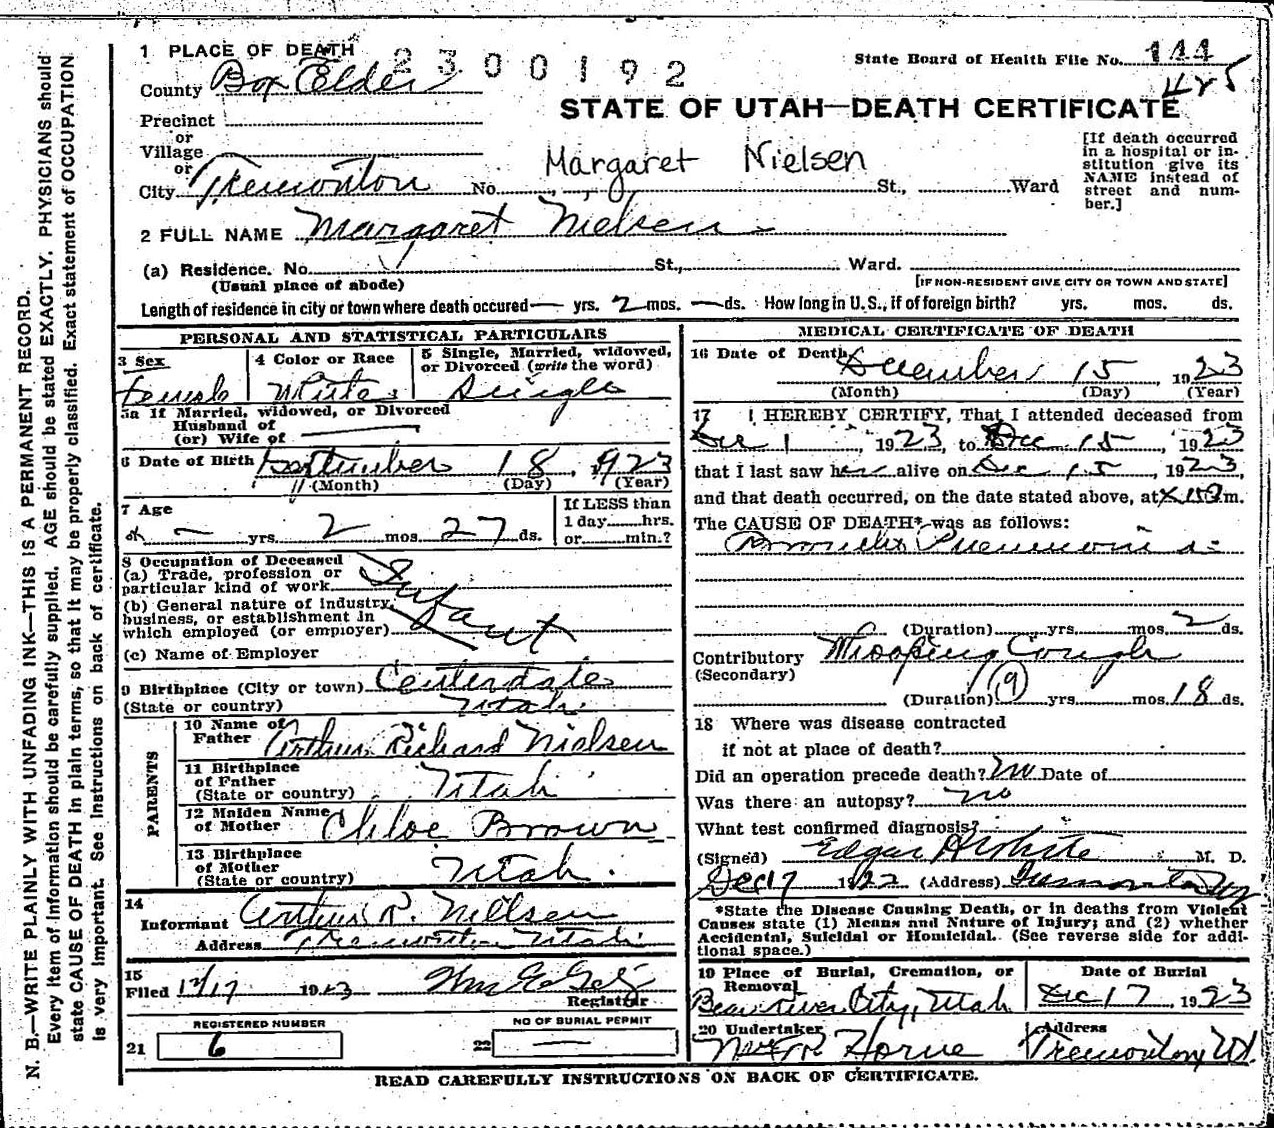 1 PLACE OF DEATH
2300192
State Board of Health File No. 144
485
County Box Elder
STATE OF UTAH—DEATH CERTIFICATE
Precinct
or
Village
or
City Tremonton No. St., Ward
Margaret Nielsen
[If death occurred
in a hospital or in-
stitution give its
NAME instead of
street and num-
ber.]
2 FULL NAME Margaret Nielsen
(a) Residence. No. St., Ward.
(Usual place of abode)
[IF NON-RESIDENT GIVE CITY OR TOWN AND STATE]
Length of residence in city or town where death occured — yrs. 2 mos. — ds. How long in U. S., if of foreign birth? yrs. mos. ds.
PERSONAL AND STATISTICAL PARTICULARS
3 Sex
Female
4 Color or Race
White
5 Single, Married, widowed,
or Divorced (write the word)
Single
5a If Married, widowed, or Divorced
Husband of
(or) Wife of
6 Date of Birth September 18, 1923
(Month) (Day) (Year)
7 Age
— yrs. 2 mos. 27 ds.
If LESS than
1 day hrs.
or min.?
8 Occupation of Deceased
(a) Trade, profession or
particular kind of work
Infant
(b) General nature of industry,
business, or establishment in
which employed (or employer)
(c) Name of Employer
9 Birthplace (City or town) Centerdale
(State or country) Utah.
PARENTS
10 Name of
Father Arthur Richard Nielsen
11 Birthplace
of Father
(State or country) Utah
12 Maiden Name
of Mother Chloe Brown
13 Birthplace
of Mother
(State or country) Utah.
14
Informant Arthur R. Nielsen
Address Tremonton Utah
15
Filed 12/17 1923
Registrar
REGISTERED NUMBER
21 6
NO OF BURIAL PERMIT
22 —
MEDICAL CERTIFICATE OF DEATH
16 Date of Death December 15 1923
(Month) (Day) (Year)
17 I HEREBY CERTIFY, That I attended deceased from
Dec 1, 1923, to Dec 15, 1923
that I last saw her alive on Dec 15, 1923,
and that death occurred, on the date stated above, at m.
The CAUSE OF DEATH* was as follows:
Broncho Pneumonia
(Duration) yrs. mos. 2 ds.
Contributory Whooping Cough
(Secondary)
(Duration) (9) yrs. mos. 18 ds.
18 Where was disease contracted
if not at place of death?
Did an operation precede death? no Date of
Was there an autopsy? no
What test confirmed diagnosis?
(Signed) Edgar H White M. D.
Dec 17 1922 (Address) Tremonton
*State the Disease Causing Death, or in deaths from Violent
Causes state (1) Means and Nature of Injury; and (2) whether
Accidental, Suicidal or Homicidal. (See reverse side for addi-
tional space.)
19 Place of Burial, Cremation, or
Removal
Bear River City, Utah
Date of Burial
Dec 17, 1923
20 Undertaker
Horne
Address
Tremonton, Ut.
READ CAREFULLY INSTRUCTIONS ON BACK OF CERTIFICATE.
N. B.—WRITE PLAINLY WITH UNFADING INK—THIS IS A PERMANENT RECORD.
Every item of information should be carefully supplied. AGE should be stated EXACTLY. PHYSICIANS should
state CAUSE OF DEATH in plain terms, so that it may be properly classified. Exact statement of OCCUPATION
is very important. See instructions on back of certificate.